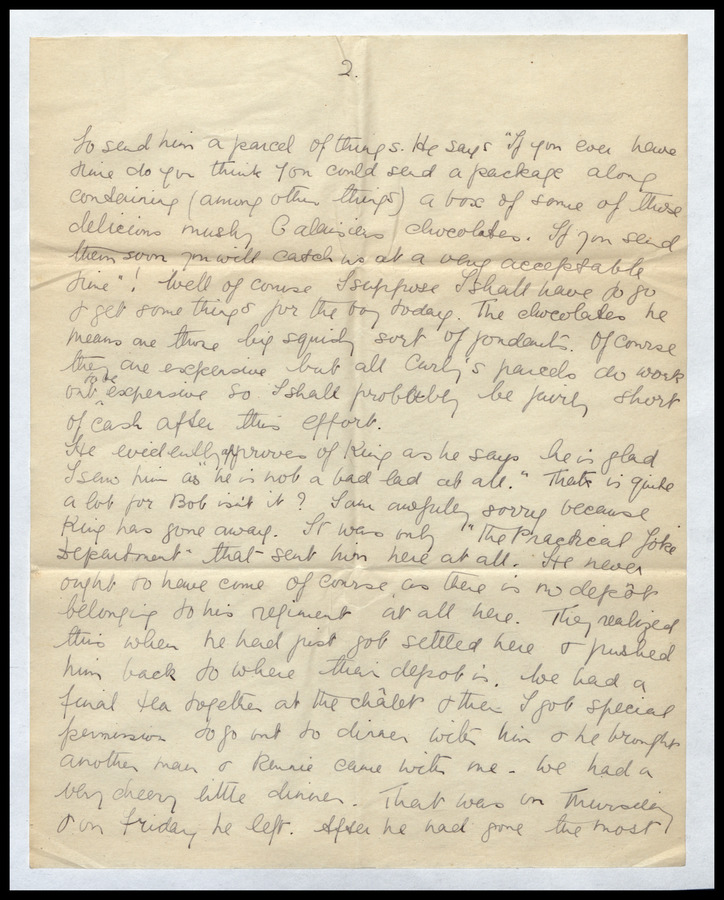 2.
to send him a parcel of things. He says "If you ever have
time do you think you could send a package along
containing (among other things) a box of some of those
delicious mushy Calaisiens chocolates. If you send
them soon you will catch us at a very acceptable
time"! Well of course I suppose I shall have to go
& get some things for the boy today. The chocolates he
means are those big squishy sort of fondants. Of course
they are expensive but all Curly's parcels do work
out to be expensive so I shall probably be fairly short
of cash after this effort.
He evidently approves of King as he says he is glad
I saw him as "he is not a bad lad at all." That's quite
a lot for Bob isn't it? I am awfully sorry because
King has gone away. It was only "The Practical Joke
Department" that sent him here at all. He never
ought to have come of course as there is no depôt
belonging to his regiment at all here. They realized
this when he had just got settled here & pushed
him back to where their depot is. We had a
final tea together at the châlet & then I got special
permission to go out to dinner with him & he brought
another man & Rennie came with me. We had a
very cheery little dinner. That was on Thursday
& on Friday he left. After he had gone the most